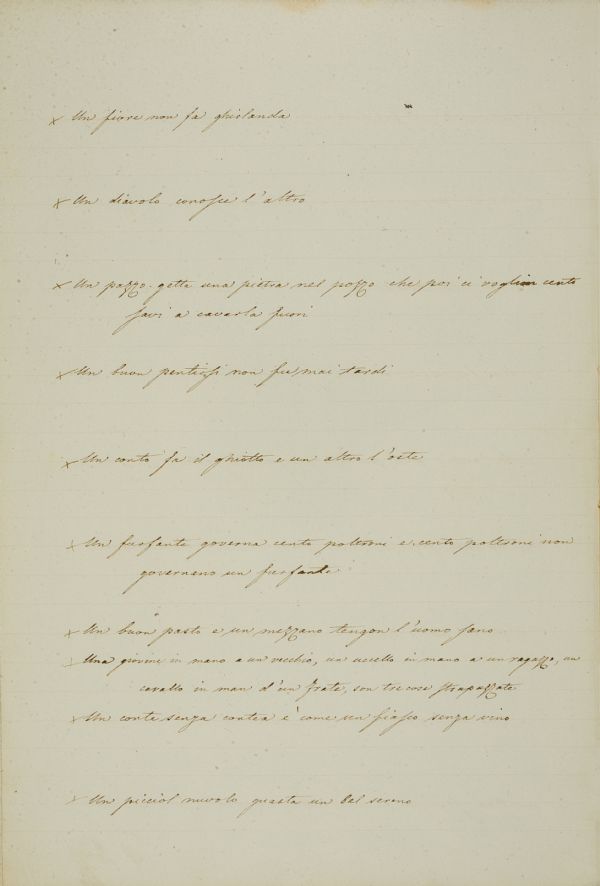 x Un fiore non fa ghirlanda
x Un diavolo conosce l'altro
x Un pazzo getta una pietra nel pozzo che poi ci voglion cento
savi a cavarla fuori
x Un buon pentirsi non fu mai tardi
x Un conto fa il ghiotto e un altro l'oste
x Un furfante governa cento poltroni e cento poltroni non
governeno un furfante
x Un buon pasto e un mezzano tengon l'uomo sano
x Una giovine in mano a un vecchio, un uccello in mano a un ragazzo, un
cavallo in man d'un frate, son tre cose strapazzate
x Un conte senza contea è come un fiasco senza vino
x Un picciol nuvolo guasta un bel sereno